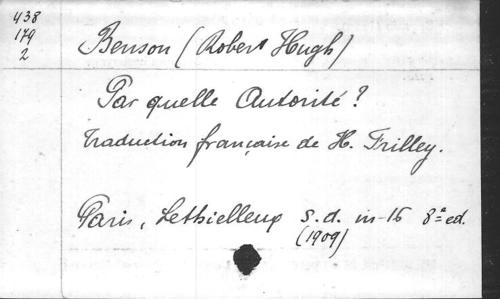 438
179
2
Benson (Robert Hugh)
Par quelle Autorité?
traduction française de H. Frilley.
Paris, Lethielleux s.d. in-16 8ª ed.
(1909)